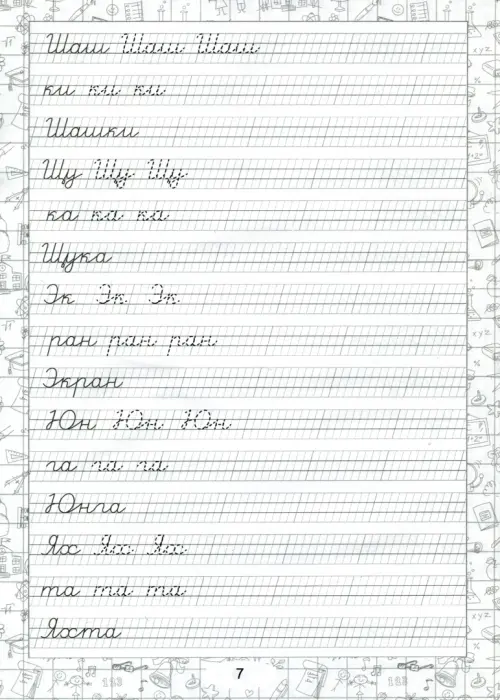 Шаш Шаш Шаш
ки ки ки
Шашки
Щу Щу Щу
ка ка ка
Щука
Эк Эк Эк
ран ран ран
Экран
Юн Юн Юн
га га га
Юнга
Ях Ях Ях
та та та
Яхта
7